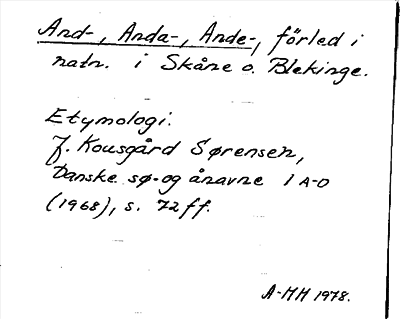 And-, Anda-, Ande-, förled i
natn. i Skåne o. Blekinge.
Etymologi:
J. Kousgård Sørensen,
Danske sø- og ånavne 1 A-D
(1968), s. 72 ff.
A-MH 1978.